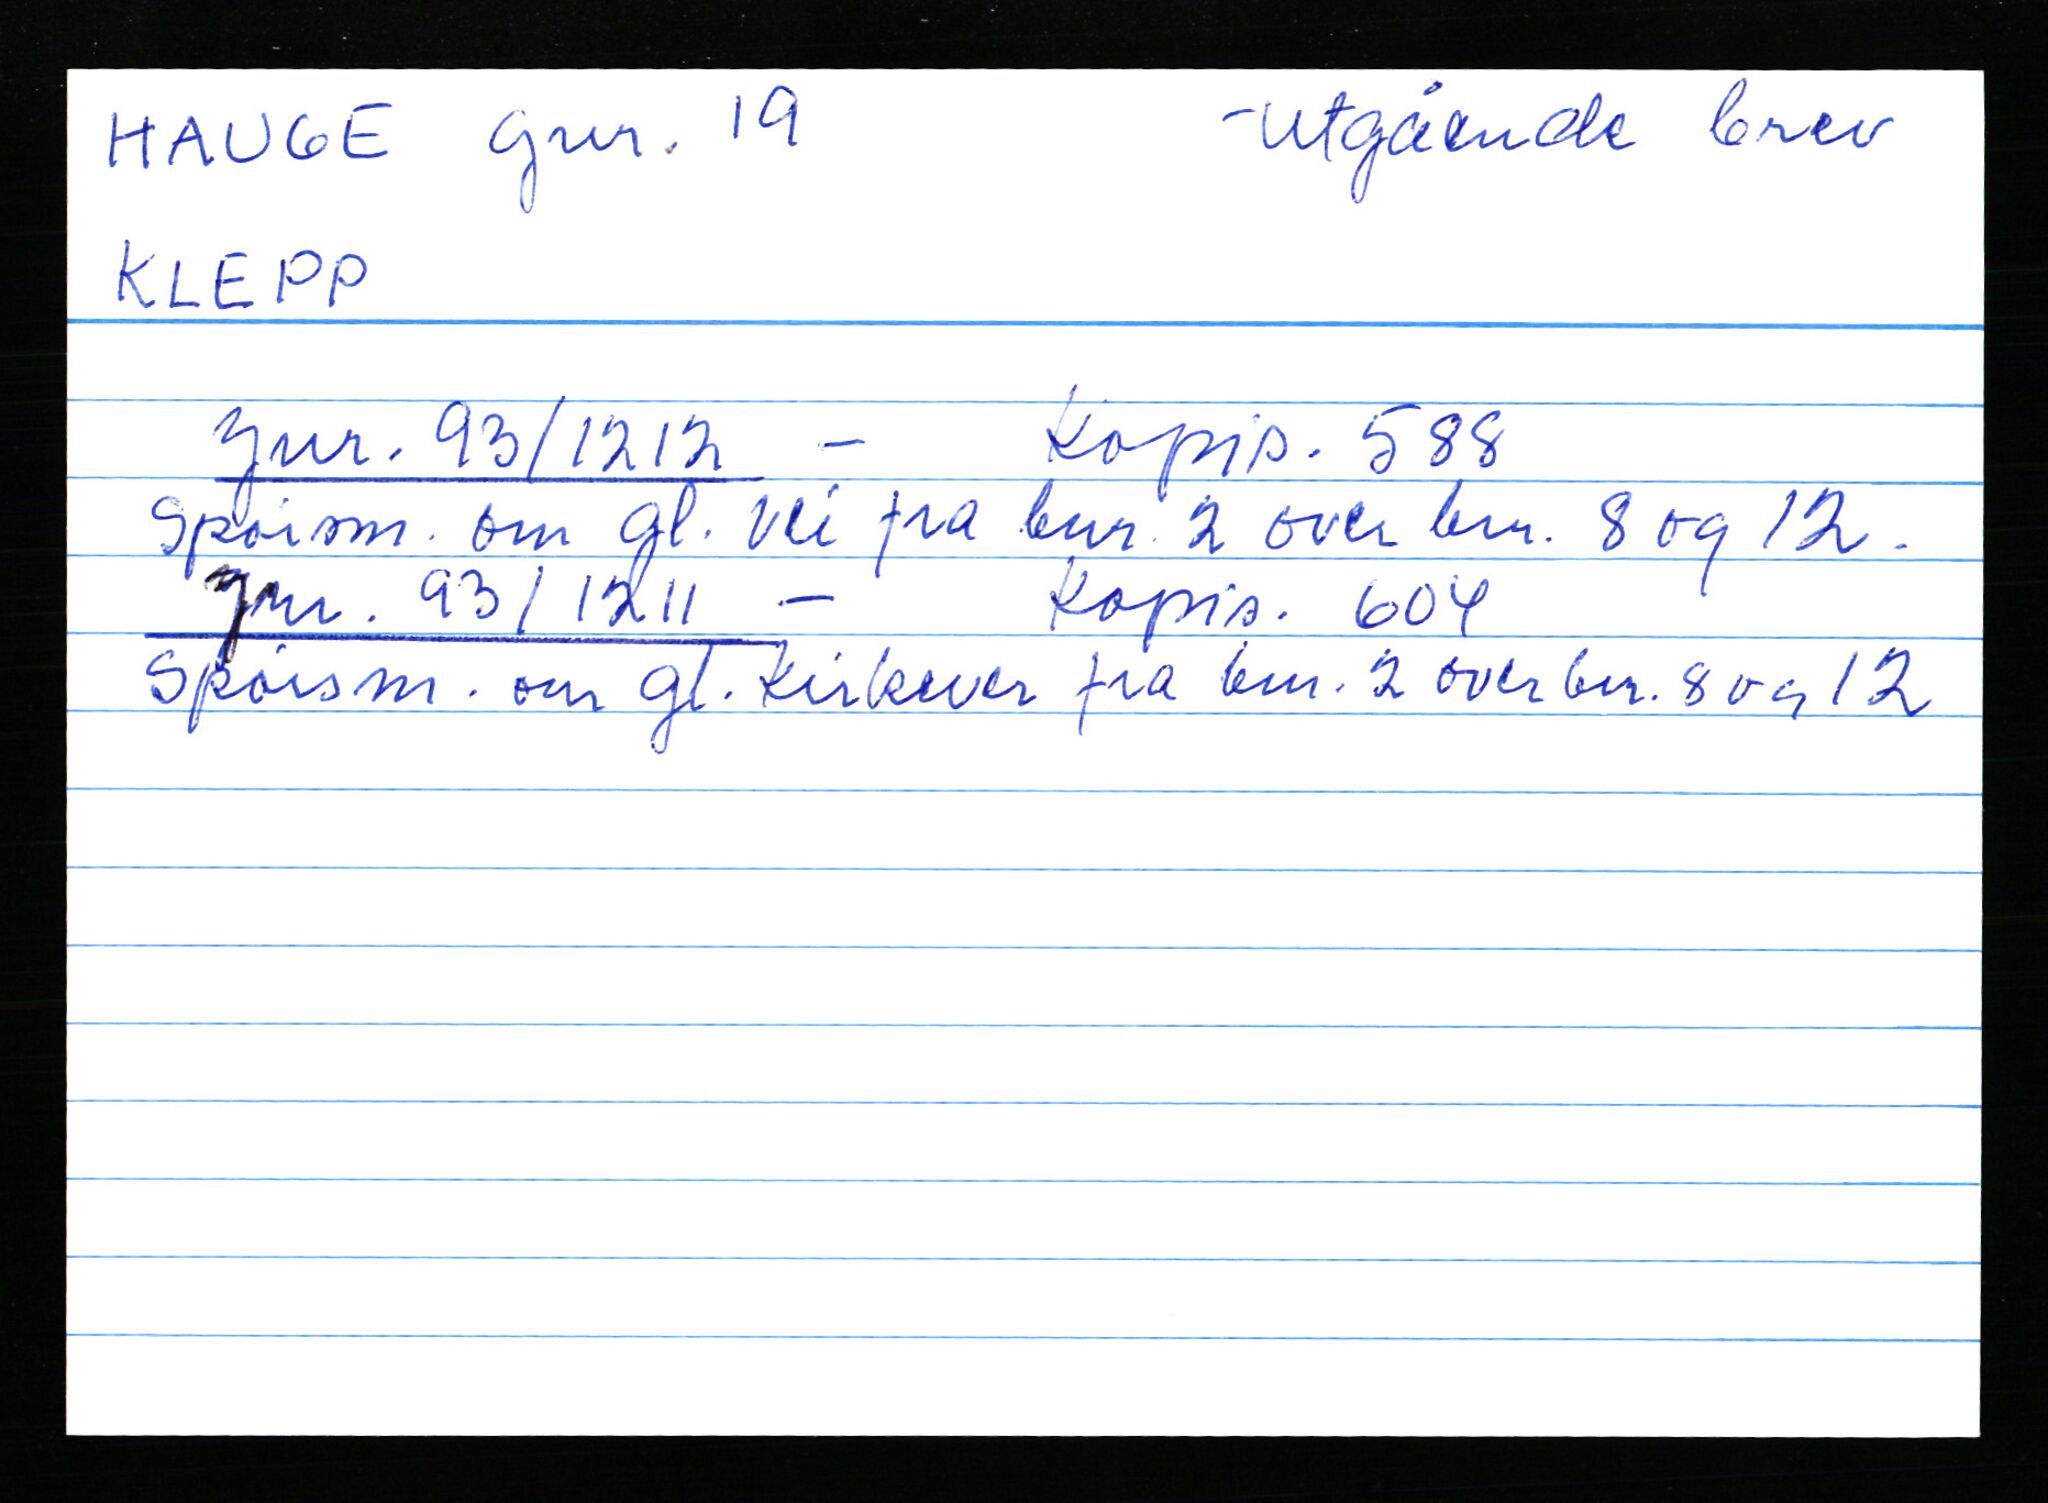 HAUGE gnr. 19 - Utgående brev
KLEPP
Jnr. 93/1212 - Kopis. 588
Spørsm. om gl. vei fra bnr. 2 over bnr. 8 og 12.
Jnr. 93/1211 - Kopis. 604
Spørsm. om gl. kirkever fra bnr. 2 over bnr. 8 og 12